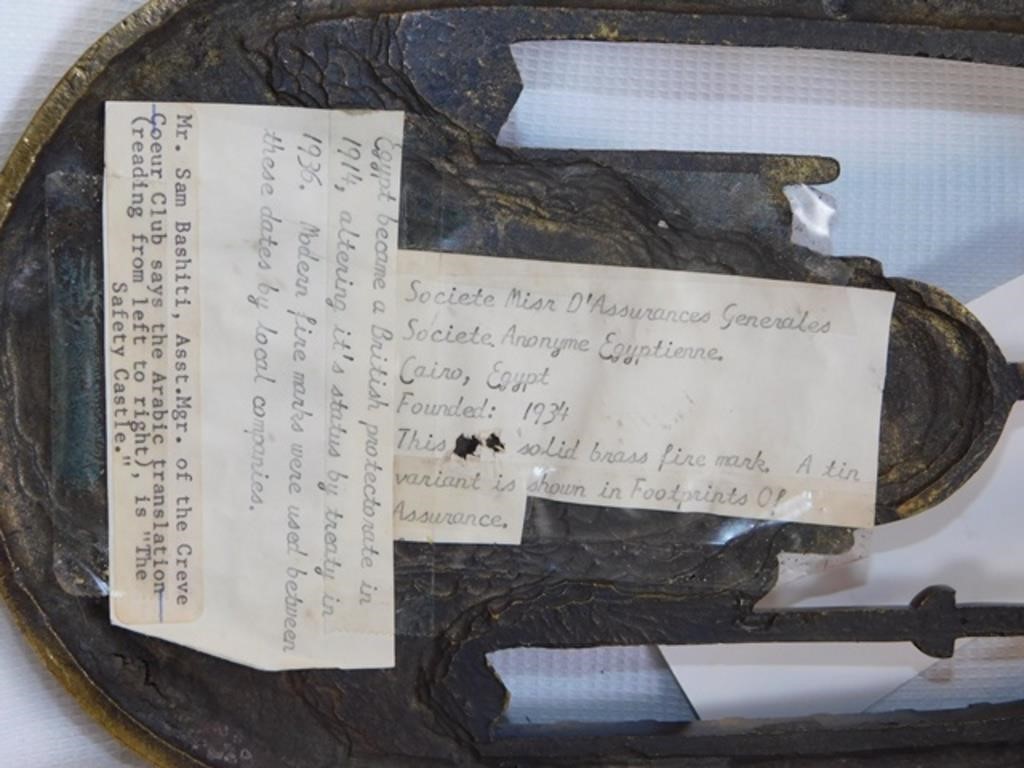 Societe Misr D'Assurances Generales
Societe Anonyme Egyptienne.
Cairo, Egypt
Founded: 1934
This solid brass fire mark. A tin
variant is shown in Footprints Of
Assurance.
Egypt became a British protectorate in
1914, altering it's status by treaty in
1936. Modern fire marks were used between
these dates by local companies.
Mr. Sam Bashiti, Asst.Mgr. of the Creve
Coeur Club says the Arabic translation
(reading from left to right), is "The
Safety Castle."